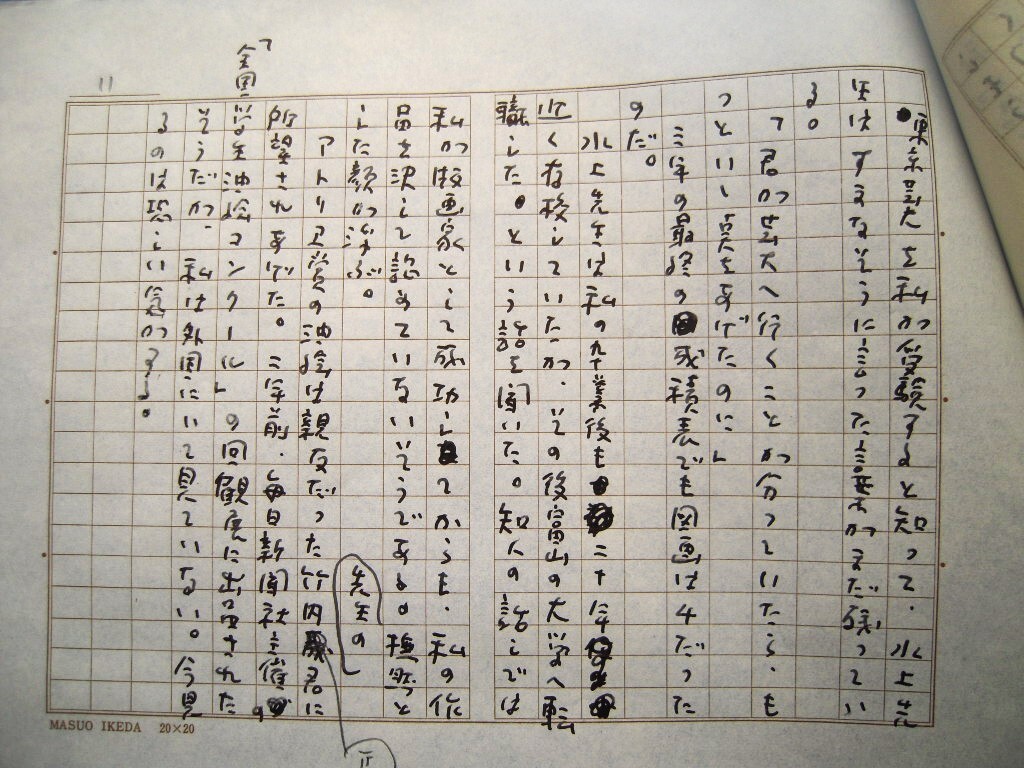 11
東京芸大を私が受験すると知って、水上先
生はすまなそうに言った言葉がまだ残ってい
る。
「君が芸大へ行くことが分っていたら、も
っといい点をあげたのに」
三年の最終の成積表でも図画は4だった
のだ。
水上先生は私の卒業後も二十年
近く在校していたが、その後富山の大学へ転
職した。という話を聞いた。知人の話しでは
私が版画家として成功してからも、私の作
品を決して認めていないそうである。憮然と
した先生の顔が浮ぶ。
アトリエ賞の油絵は親友だった竹内君に
所望されあげた。二年前、毎日新聞社主催の
「全国学生油絵コンクール」の回顧展に出品された
そうだが、私は外国にいて見ていない。今見
るのは恐しい気がする。
MASUO IKEDA 20×20